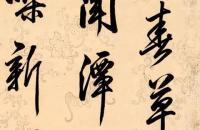 春草
聞潭
新